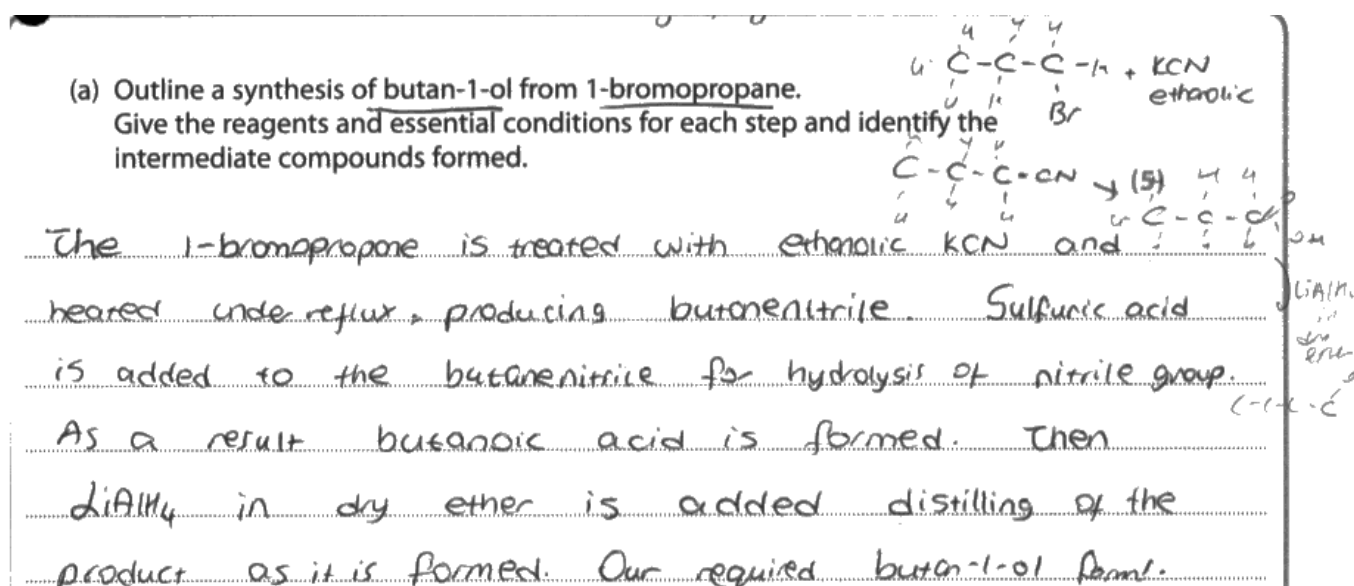 (a) Outline a synthesis of butan-1-ol from 1-bromopropane.
Give the reagents and essential conditions for each step and identify the
intermediate compounds formed.
(5)
H C-C-C-H + KCN
ethanolic
Br
C-C-C-CN
The 1-bromopropane is treated with ethanolic KCN and
heated under reflux, producing butanenitrile. Sulfuric acid
is added to the butanenitrile for hydrolysis of nitrile group.
As a result butanoic acid is formed. Then
LiAlH4 in dry ether is added distilling of the
product as it is formed. Our required butan-1-ol forms.
LiAlH4
in
dry
ether